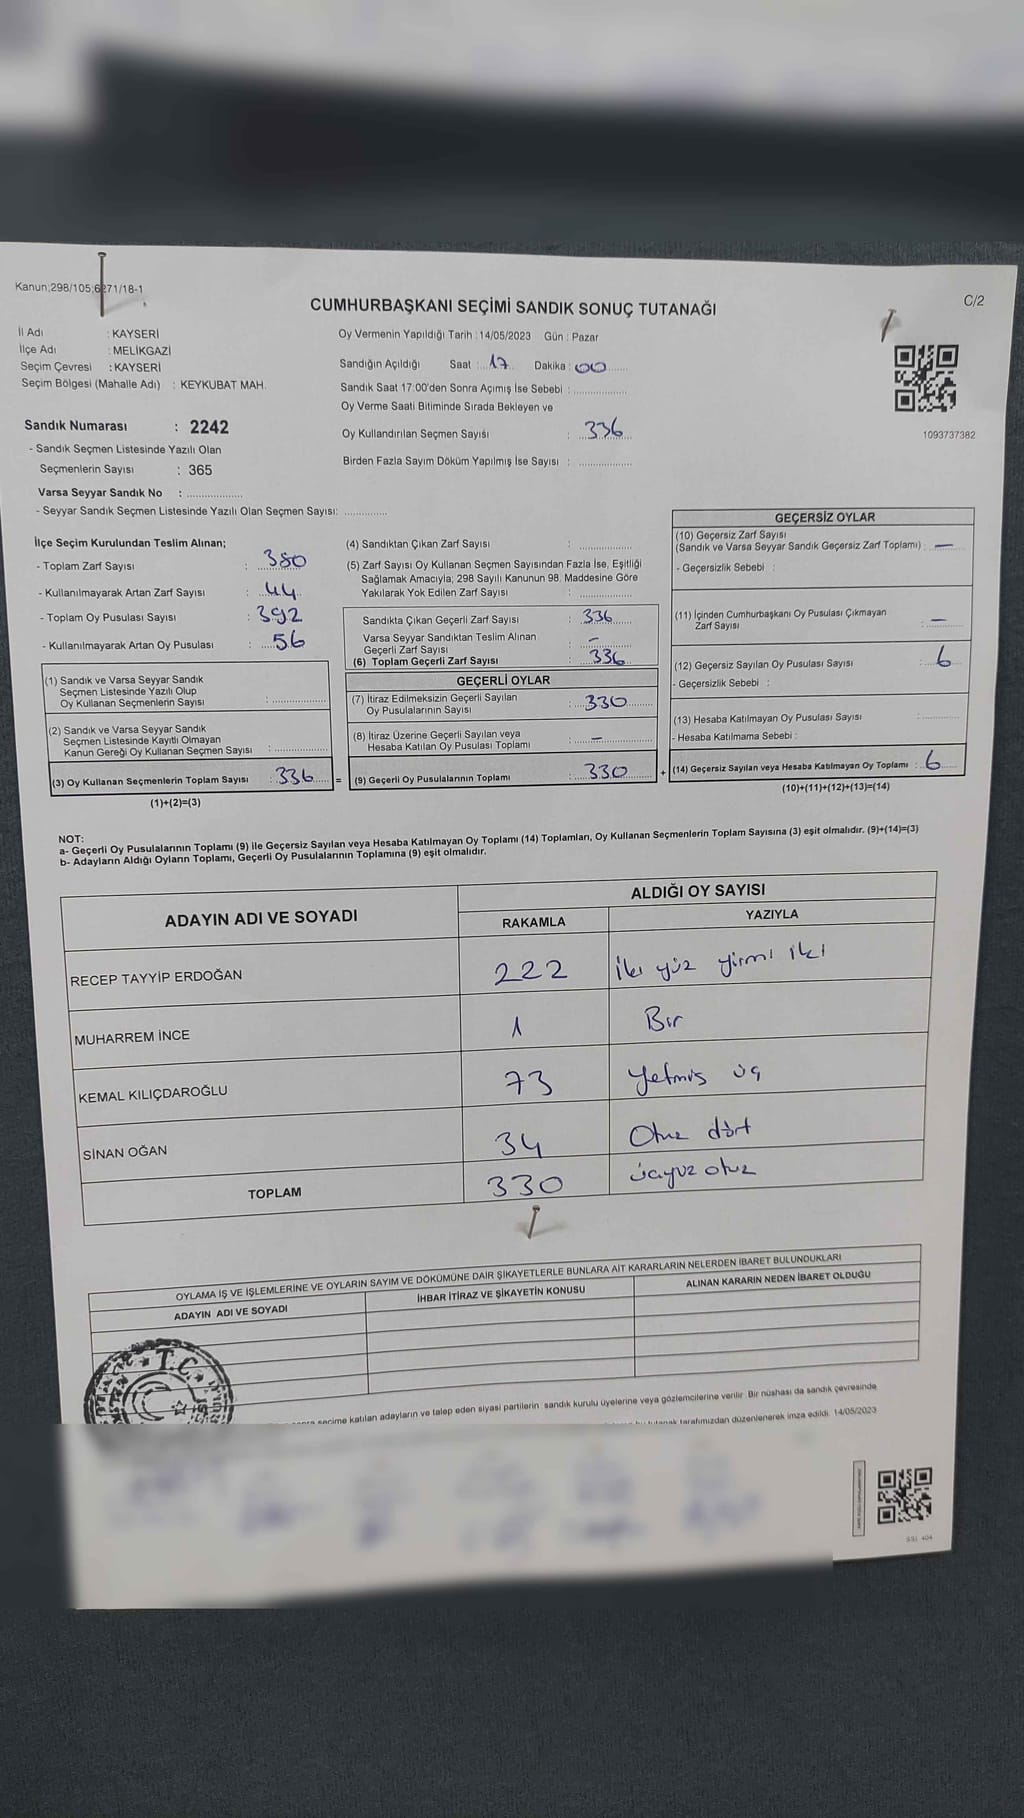 Kanun;298/105;6271/18-1
C/2
CUMHURBAŞKANI SEÇİMİ SANDIK SONUÇ TUTANAĞI
İl Adı : KAYSERİ
İlçe Adı : MELİKGAZİ
Seçim Çevresi : KAYSERİ
Seçim Bölgesi (Mahalle Adı) : KEYKUBAT MAH.
Sandık Numarası : 2242
- Sandık Seçmen Listesinde Yazılı Olan
Seçmenlerin Sayısı : 365
Varsa Seyyar Sandık No : ....................
- Seyyar Sandık Seçmen Listesinde Yazılı Olan Seçmen Sayısı: .............
Oy Vermenin Yapıldığı Tarih : 14/05/2023 Gün : Pazar
Sandığın Açıldığı Saat : 17 Dakika : 00
Sandık Saat 17:00'den Sonra Açımış İse Sebebi : ................
Oy Verme Saati Bitiminde Sırada Bekleyen ve
Oy Kullandırılan Seçmen Sayısı : 336
Birden Fazla Sayım Döküm Yapılmış İse Sayısı : ................
1093737382
İlçe Seçim Kurulundan Teslim Alınan;
- Toplam Zarf Sayısı : 380
- Kullanılmayarak Artan Zarf Sayısı : 44
- Toplam Oy Pusulası Sayısı : 392
- Kullanılmayarak Artan Oy Pusulası : 56
(1) Sandık ve Varsa Seyyar Sandık
Seçmen Listesinde Yazılı Olup
Oy Kullanan Seçmenlerin Sayısı : ................
(2) Sandık ve Varsa Seyyar Sandık
Seçmen Listesinde Kayıtlı Olmayan
Kanun Gereği Oy Kullanan Seçmen Sayısı : ................
(3) Oy Kullanan Seçmenlerin Toplam Sayısı : 336 =
(1)+(2)=(3)
(4) Sandıktan Çıkan Zarf Sayısı : ................
(5) Zarf Sayısı Oy Kullanan Seçmen Sayısından Fazla İse, Eşitliği
Sağlamak Amacıyla; 298 Sayılı Kanunun 98. Maddesine Göre
Yakılarak Yok Edilen Zarf Sayısı : ................
Sandıkta Çıkan Geçerli Zarf Sayısı : 336
Varsa Seyyar Sandıktan Teslim Alınan
Geçerli Zarf Sayısı : –
(6) Toplam Geçerli Zarf Sayısı : 336
GEÇERLİ OYLAR
(7) İtiraz Edilmeksizin Geçerli Sayılan
Oy Pusulalarının Sayısı : 330
(8) İtiraz Üzerine Geçerli Sayılan veya
Hesaba Katılan Oy Pusulası Toplamı : –
(9) Geçerli Oy Pusulalarının Toplamı : 330 +
GEÇERSİZ OYLAR
(10) Geçersiz Zarf Sayısı
(Sandık ve Varsa Seyyar Sandık Geçersiz Zarf Toplamı) : –
- Geçersizlik Sebebi :
(11) İçinden Cumhurbaşkanı Oy Pusulası Çıkmayan
Zarf Sayısı : –
(12) Geçersiz Sayılan Oy Pusulası Sayısı : 6
- Geçersizlik Sebebi :
(13) Hesaba Katılmayan Oy Pusulası Sayısı : ................
- Hesaba Katılmama Sebebi :
(14) Geçersiz Sayılan veya Hesaba Katılmayan Oy Toplamı : 6
(10)+(11)+(12)+(13)=(14)
NOT:
a- Geçerli Oy Pusulalarının Toplamı (9) ile Geçersiz Sayılan veya Hesaba Katılmayan Oy Toplamı (14) Toplamları, Oy Kullanan Seçmenlerin Toplam Sayısına (3) eşit olmalıdır. (9)+(14)=(3)
b- Adayların Aldığı Oyların Toplamı, Geçerli Oy Pusulalarının Toplamına (9) eşit olmalıdır.
ADAYIN ADI VE SOYADI
ALDIĞI OY SAYISI
RAKAMLA YAZIYLA
RECEP TAYYİP ERDOĞAN 222 İki yüz yirmi iki
MUHARREM İNCE 1 Bir
KEMAL KILIÇDAROĞLU 73 Yetmiş üç
SİNAN OĞAN 34 Otuz dört
TOPLAM 330 üçyüz otuz
OYLAMA İŞ VE İŞLEMLERİNE VE OYLARIN SAYIM VE DÖKÜMÜNE DAİR ŞİKAYETLERLE BUNLARA AİT KARARLARIN NELERDEN İBARET BULUNDUKLARI
ADAYIN ADI VE SOYADI İHBAR İTİRAZ VE ŞİKAYETİN KONUSU ALINAN KARARIN NEDEN İBARET OLDUĞU
T.C.
seçime katılan adayların ve talep eden siyasi partilerin sandık kurulu üyelerine veya gözlemcilerine verilir. Bir nüshası da sandık çevresinde
tutanak tarafımızdan düzenlenerek imza edildi. 14/05/2023